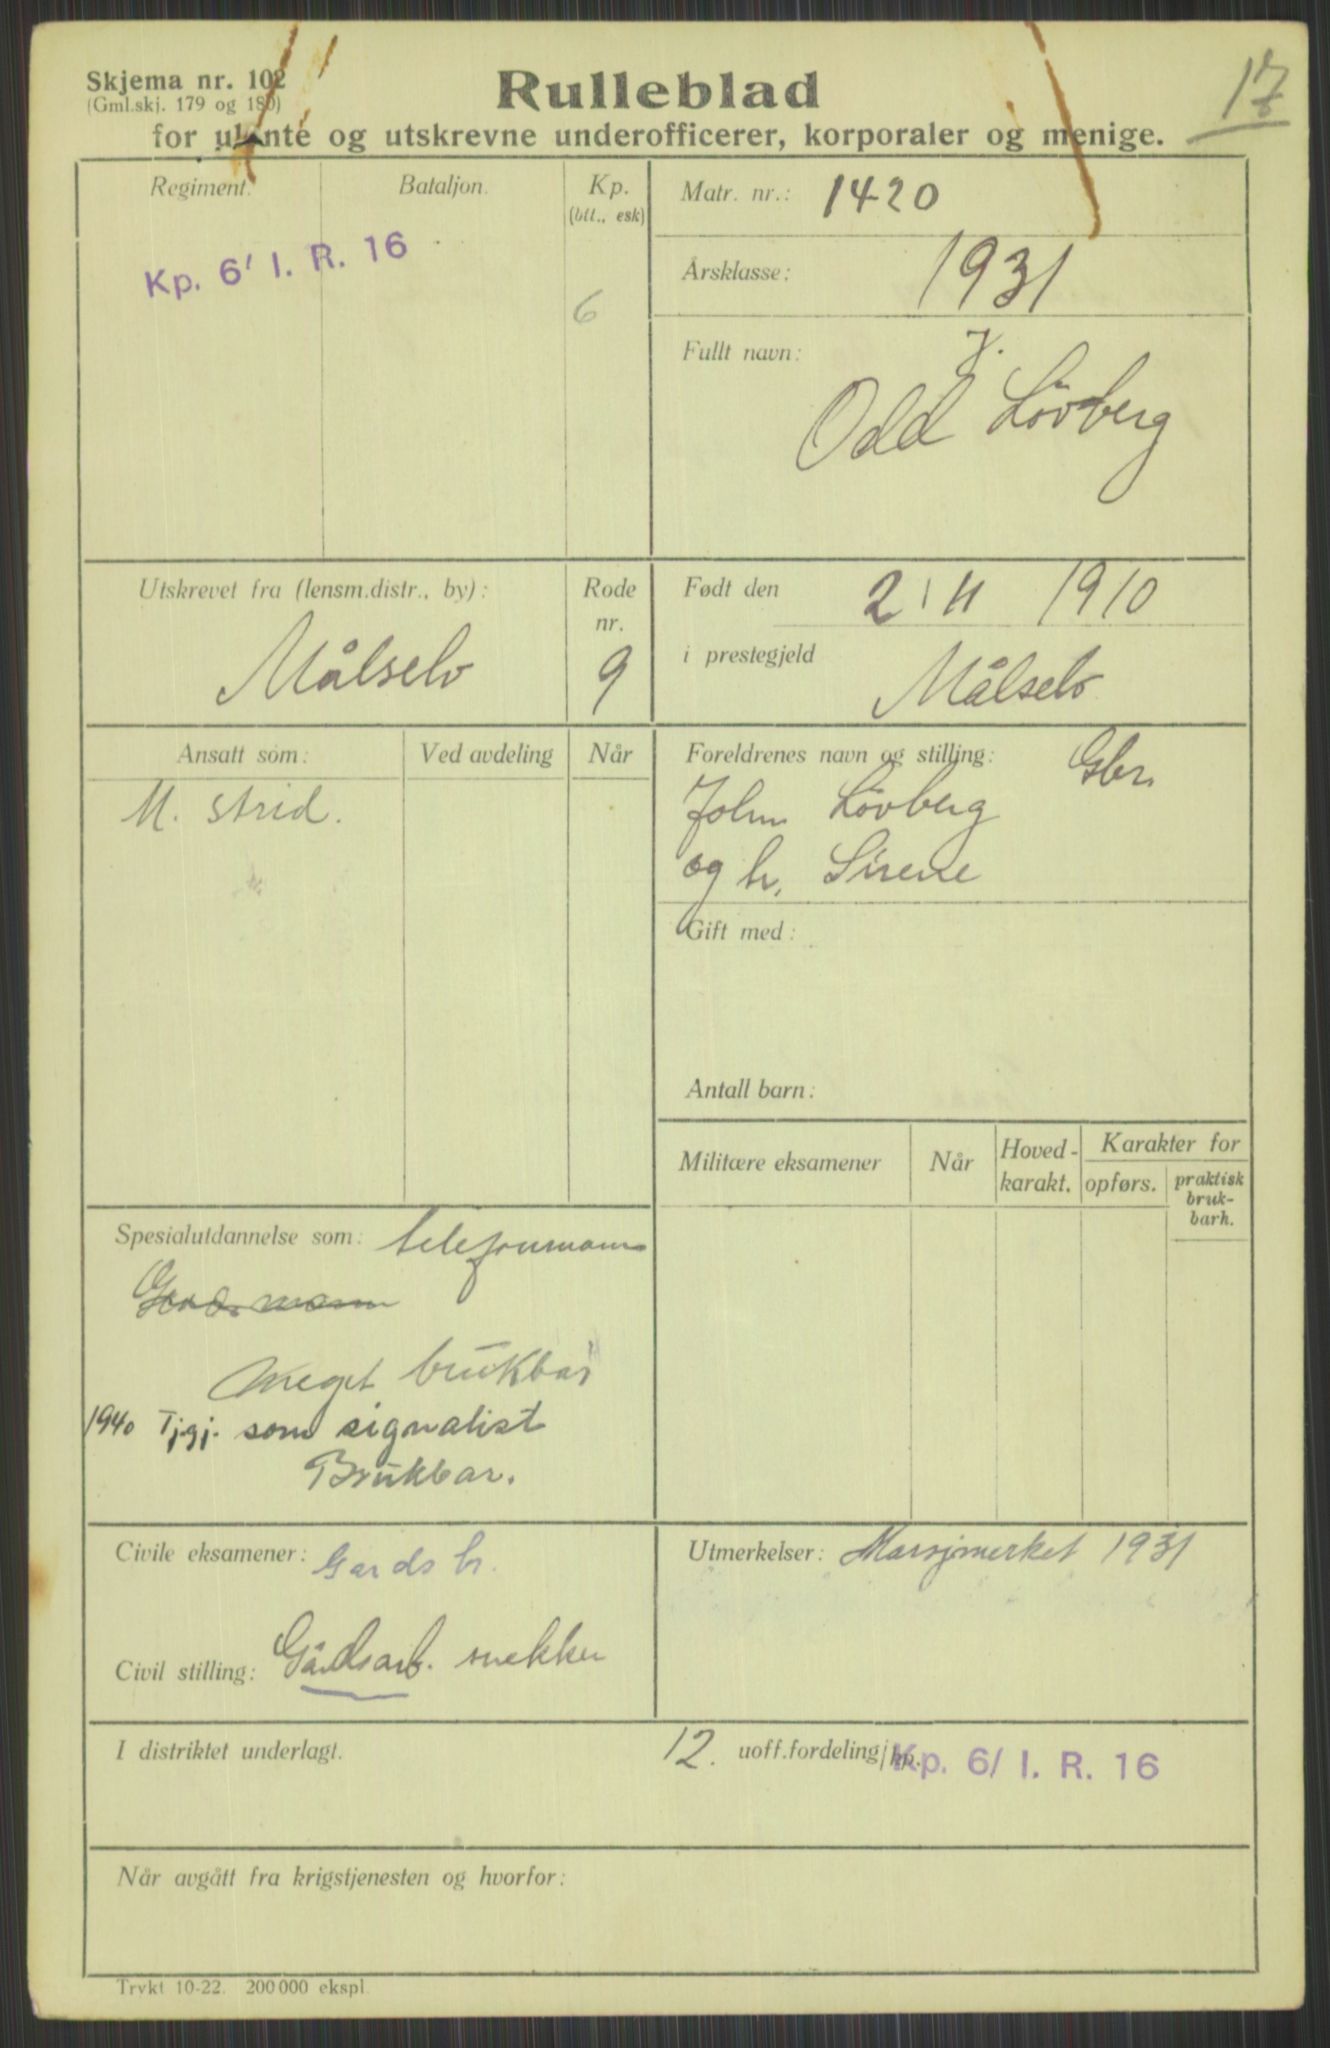 Skjema nr. 102
(Gml.skj. 179 og 180)
Rulleblad
17
for ulønte og utskrevne underofficerer, korporaler og menige.
Regiment.
Bataljon.
Kp.
(btt., esk)
Kp. 6/ I. R. 16
6
Matr. nr.: 1420
Årsklasse: 1931
Fullt navn: J.
Odd Lövberg
Utskrevet fra (lensm.distr., by):
Målselv
Rode
nr.
9
Født den 2/11 1910
i prestegjeld
Målselv
Ansatt som:
Ved avdeling
Når
M. strid.
Foreldrenes navn og stilling: Gbr.
John Lövberg
og h. Sirene
Gift med:
Antall barn:
Militære eksamener
Når
Hoved-
karakt.
Karakter for
opførs.
praktisk
bruk-
barh.
Spesialutdannelse som: telefonmann
meget brukbar
1940 Tjgj. som signalist
Brukbar.
Civile eksamener: Gards br.
Civil stilling: Gårdsarb. snekker
Utmerkelser: Marsjmerket 1931
I distriktet underlagt.
12. uoff.fordeling/kp. Kp. 6/ I. R. 16
Når avgått fra krigstjenesten og hvorfor:
Trykt 10-22. 200 000 ekspl.